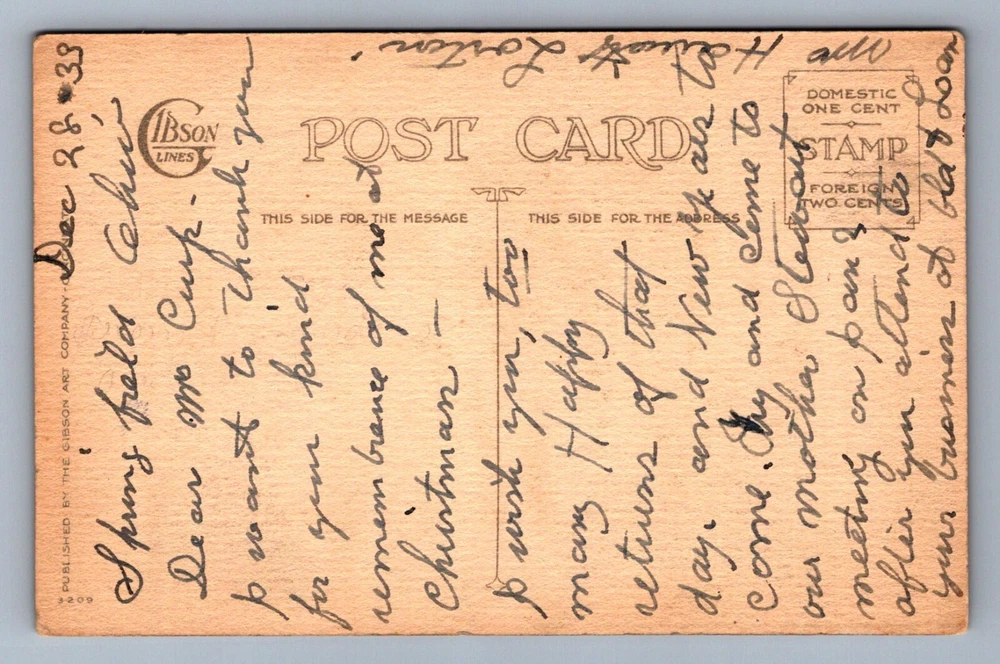 Dec 28 - 33
Springfield Ohio
Dear Mr Cusp -
I want to thank you
for your kind
remembrance of me at
Christmas —
I wish you, too
many Happy
returns of that
day. and New Years to
come. Try and come to
our mother Stewart
meeting on Jan 2
after you attend to
your business at bld & Loan
Mrs
Harriet Lorton
GIBSON
LINES
POST CARD
THIS SIDE FOR THE MESSAGE
THIS SIDE FOR THE ADDRESS
DOMESTIC
ONE CENT
STAMP
FOREIGN
TWO CENTS
PUBLISHED BY THE GIBSON ART COMPANY
3209